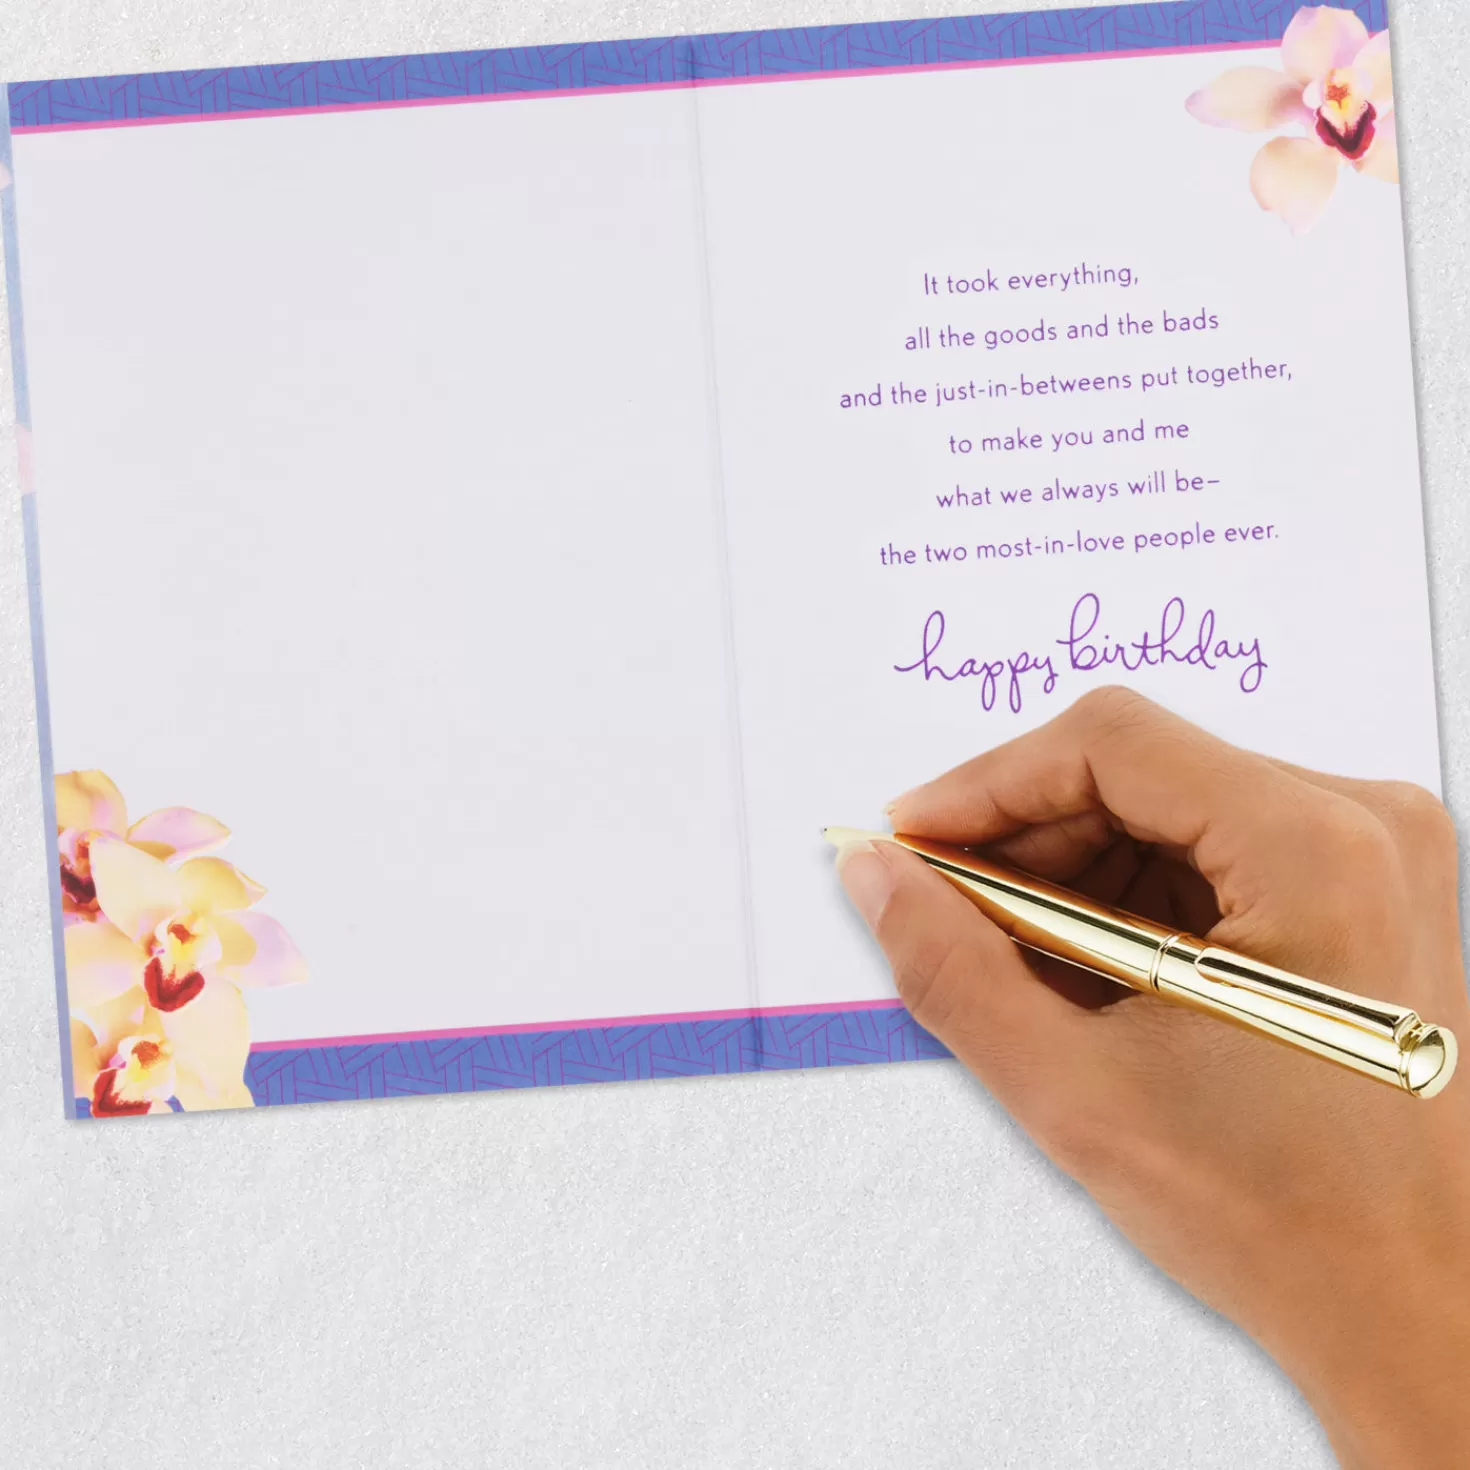 It took everything,
all the goods and the bads
and the just-in-betweens put together,
to make you and me
what we always will be–
the two most-in-love people ever.
happy birthday